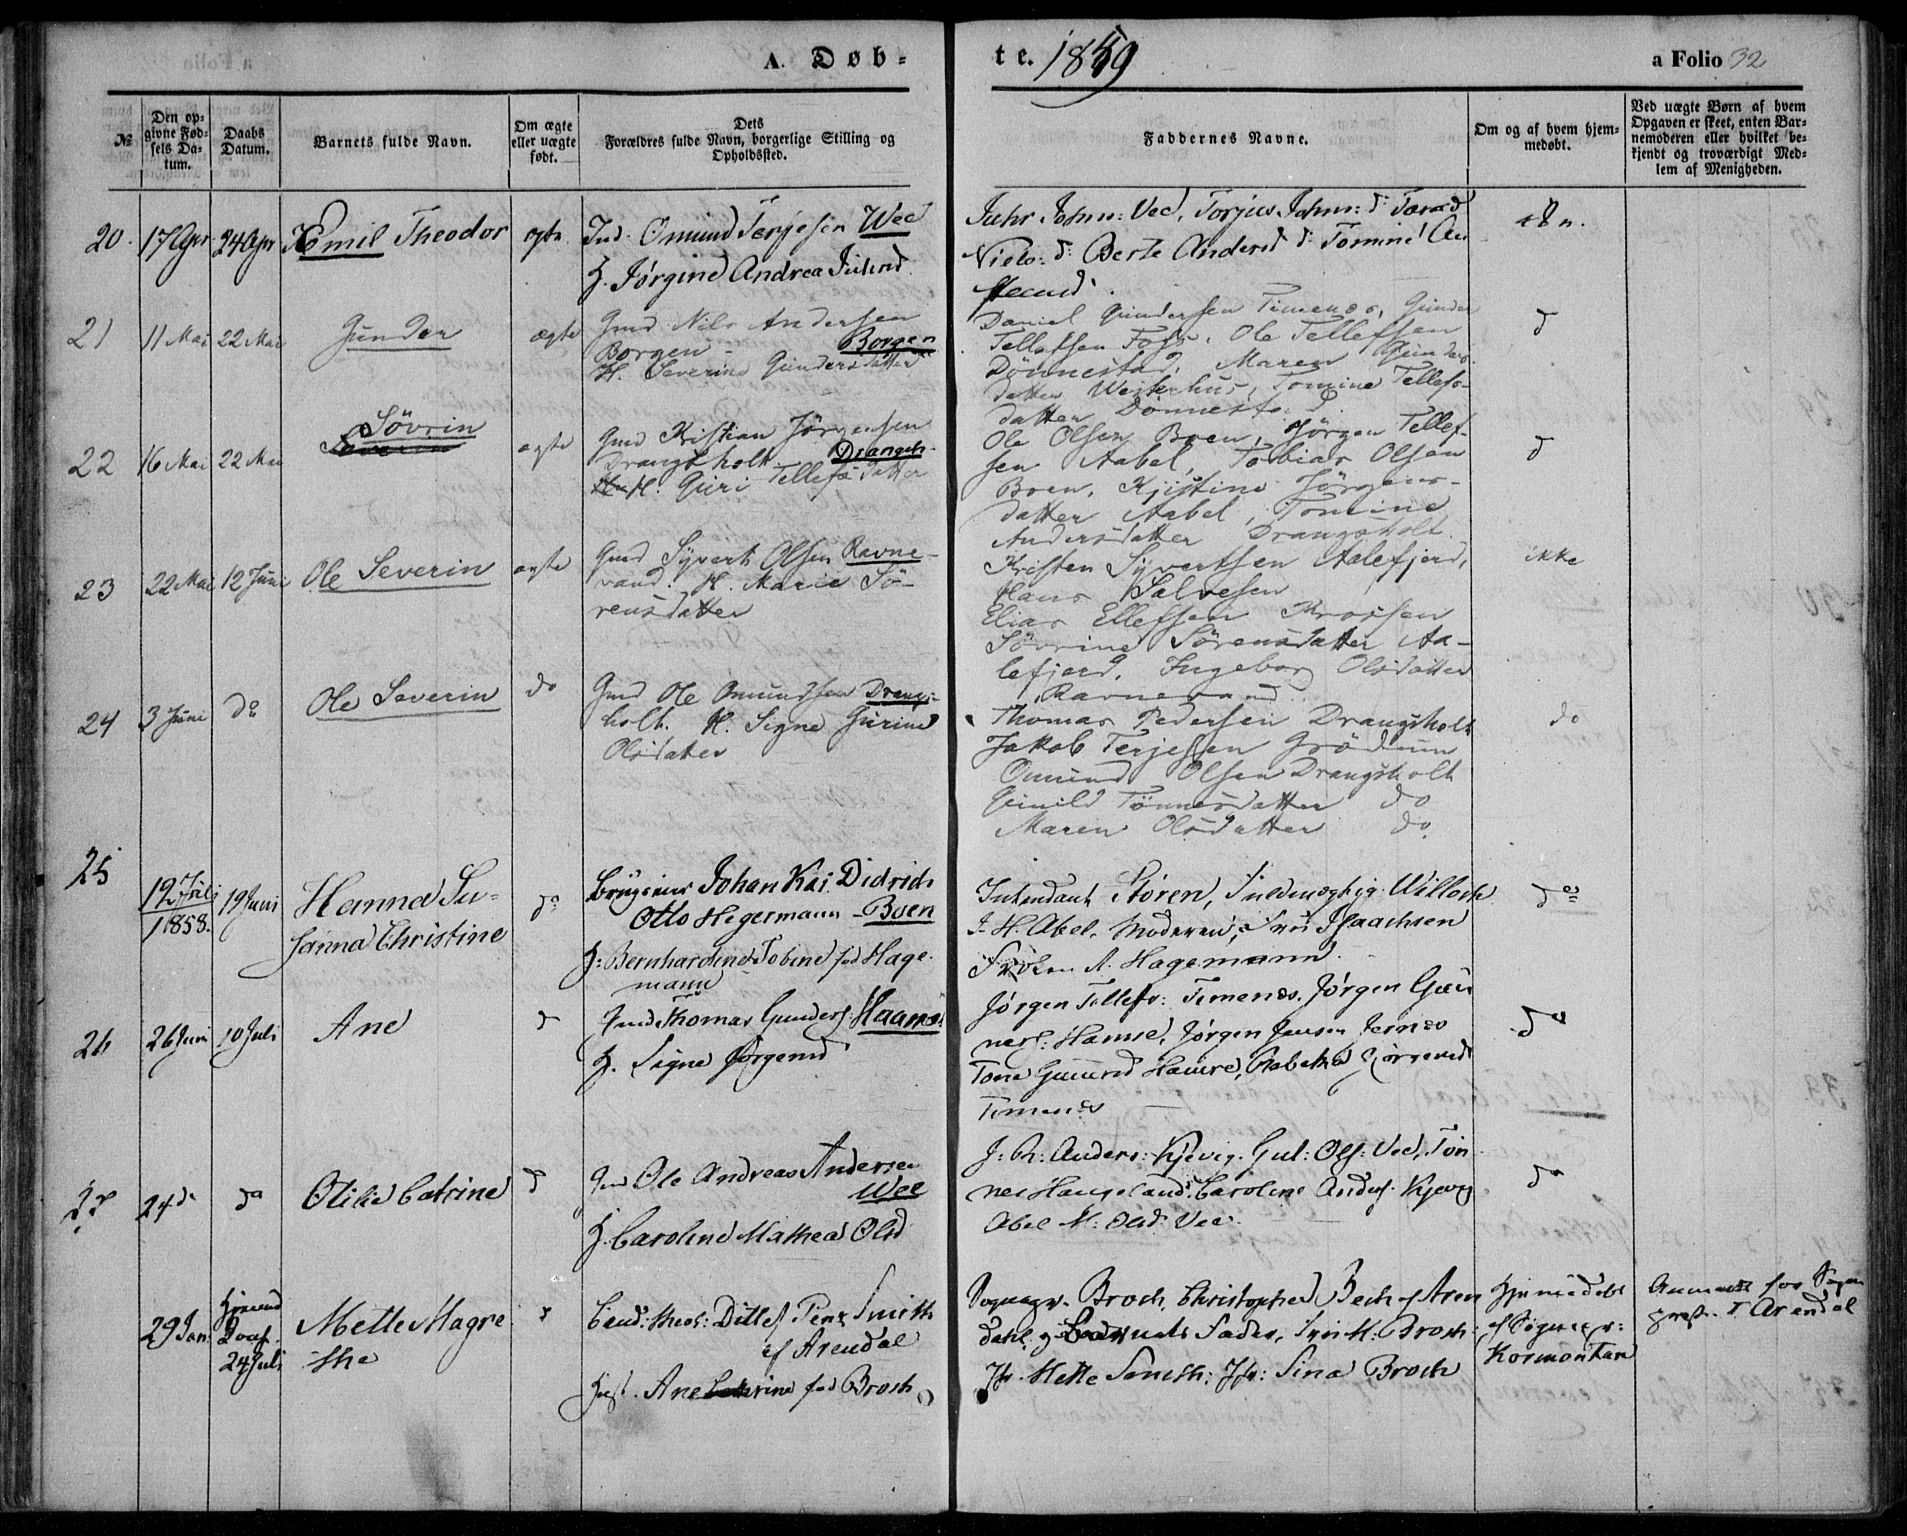 A. Døb-
te. 1859
a Folio 32
№
Den op-
givne Fød-
sels Da-
tum.
Daabs
Datum.
Barnets fulde Navn.
Om ægte
eller uægte
født.
Dets
Forældres fulde Navn, borgerlige Stilling og
Opholdssted.
Faddernes Navne.
Om og af hvem hjem-
medøbt.
Ved uægte Børn af hvem
Opgaven er skeet, enten Bar-
nemoderen eller hvilket be-
kjendt og troværdigt Med-
lem af Menigheden.
20. 17 Apr 24 Apr Emil Theodor ægte
Omund Terjesen Wee
H. Jørgine Andrea
Vee, Torjus
Berte Anders
21 11 Mai 22 Mai Gunder ægte
Gmd Nils Andersen
Borgen - Borgen
H. Severine Gundersdatter
Daniel Gundersen Timenes, Gunder
Tellefsen Foss, Ole Tellefsen
Dönnestad, Maren Gunders-
datter Westerhus, Tomine Tellefs-
datter Dönnestad
d
22 16 Mai 22 Mai Sövrin
Severin
ægte
Gmd Kristian Jörgensen
Drangsholt Drangsh-
H. Guri Tellefsdatter
Ole Olsen Boen, Jörgen Tellef-
sen Aabel, Tobias Olsen
Boen, Kjistine Jörgens-
datter Aabel, Tomine
Andersdatter Drangsholt.
d
23 22 Mai 12 Juni Ole Severin ægte
Gmd Syvert Olsen Ravne-
vand. H. Marie Sö-
rensdatter
Kristen Syvertsen Aalefjerd,
Hans Salvesen
Elias Ellefsen Krossen
Sövrine Sörensdatter Aa-
lefjerd, Ingeborg Olsdatter
Ravnevand
ikke
24 3 Juni do Ole Severin do
Gmd Ole Omundsen Drangs-
holt. H. Signe Gurine
Olsdatter
Thomas Pedersen Drangsholt
Jakob Terjesen Grödum
Omund Olsen Drangsholt
Gunild Tönnesdatter do
Maren Olsdatter do
do
25 12 Juli
1858. 19 Juni Hanna Su-
sanna Christine
do
Johan Kai Didrich
Otto Hegermann - Boen
H: Bernhardine Tobine fød Hage-
mann
Intendant Støren, Fuldmægtig Willoch
I. H. Abel, Moderen, Fru Isaachsen
Frøken A. Hagemann.
do
26 26 Juni 10 Juli Ane d
Gmd Thomas Gunders. Haamre
H. Signe Jørgensd
Jørgen Tellefs: Timenes, Jørgen Gun
ners. Hamre, Jørgen Jensen
Tone Hamre,
Timenes
do
27 24 d do Otilie Catrine d
Gmd Ole Andreas Andersen
Wee
H. Caroline Mathea Olsd
Anders: Kjevig. Gul: Ols: Vee, Tøn
nes Haugeland, Caroline Anders. Kjevig
Abel M: Olsd: Vee.
do
29 Jan.
24 Juli
Mette Magre
the
Cand: theol: Ditlef Smith
af Arendal
Ane Catrine fød Broch
Sognepr. Broch, Christopher Bech af Aren
dahl, Barnets Fader, Broch
Jfr. Mette Smith: Jfr: Sina Broch
Hjemmedøbt
af Sognepr:
Kormontan
for Sogne
præst. i Arendal